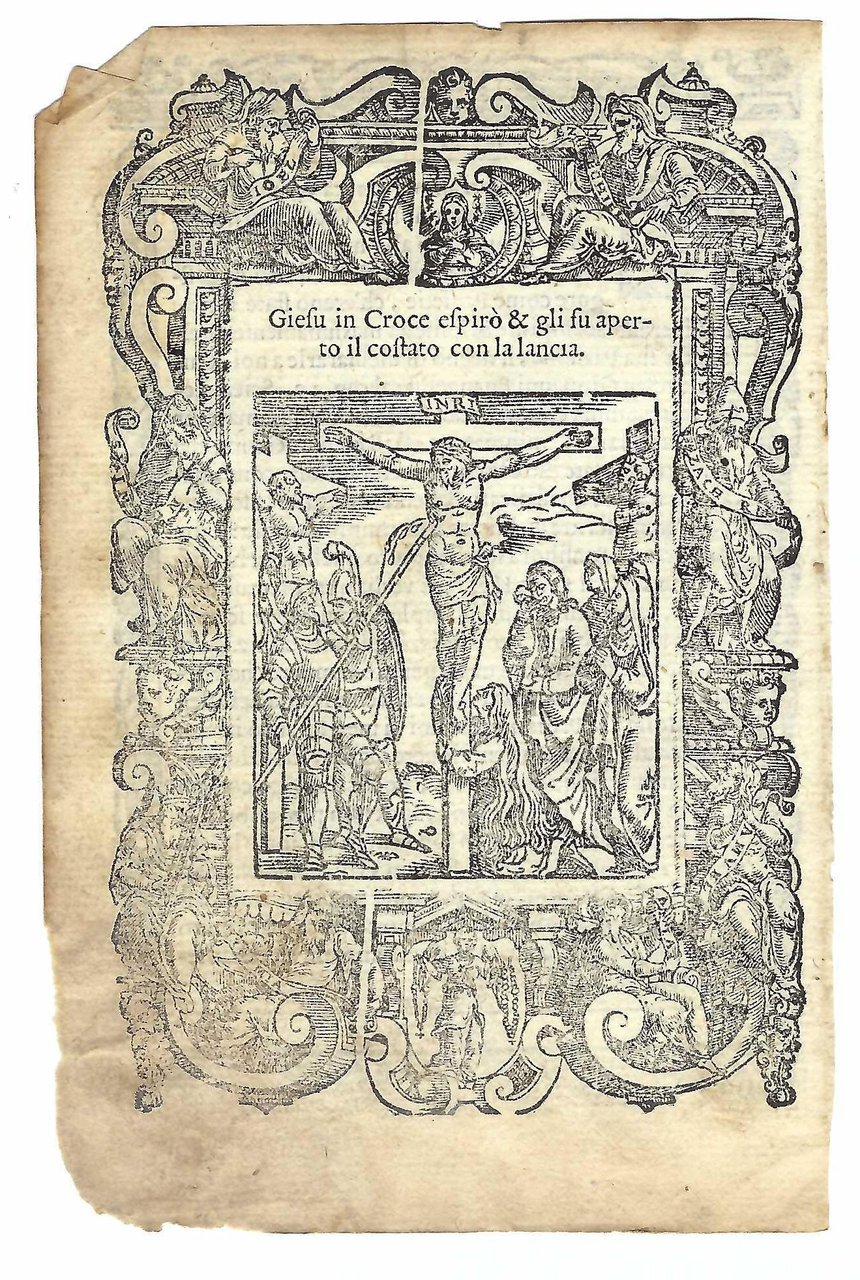 IOEL
Gieſu in Croce eſpirò & gli fu aper-
to il coſtato con la lancia.
INRI